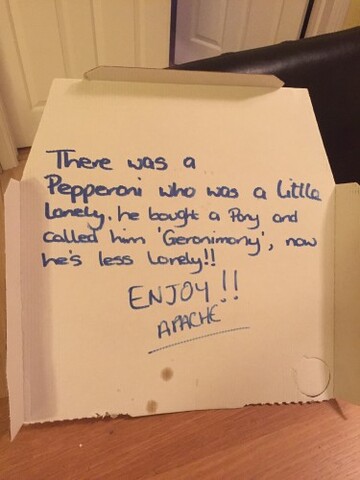 There was a
Pepperoni who was a little
lonely. he bought a Pony and
called him 'Geronimony', now
he's less lonely!!
ENJOY!!
APACHE